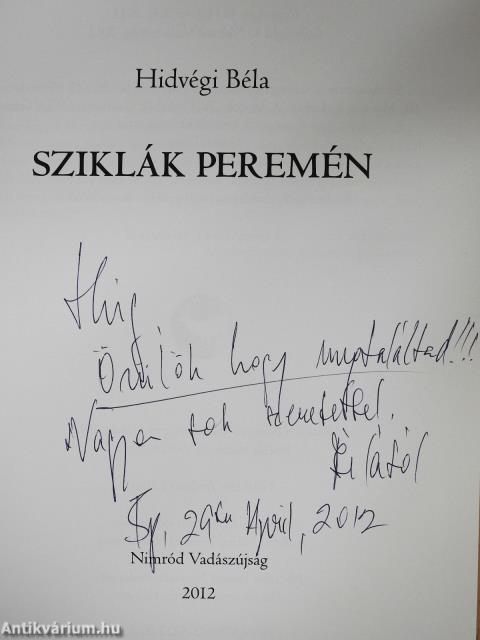 Hidvégi Béla
SZIKLÁK PEREMÉN
Örülök hogy megtaláltad!!!
Nagyon sok szeretettel,
Bp, 29 April, 2012
Nimród Vadászújság
2012
Antikvárium.hu